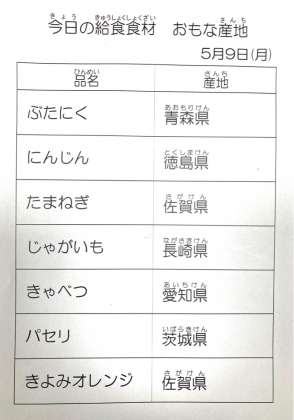 今日の給食食材 おもな産地
5月9日(月)
品名 産地
ぶたにく 青森県
にんじん 徳島県
たまねぎ 佐賀県
じゃがいも 長崎県
きゃべつ 愛知県
パセリ 茨城県
きよみオレンジ 佐賀県